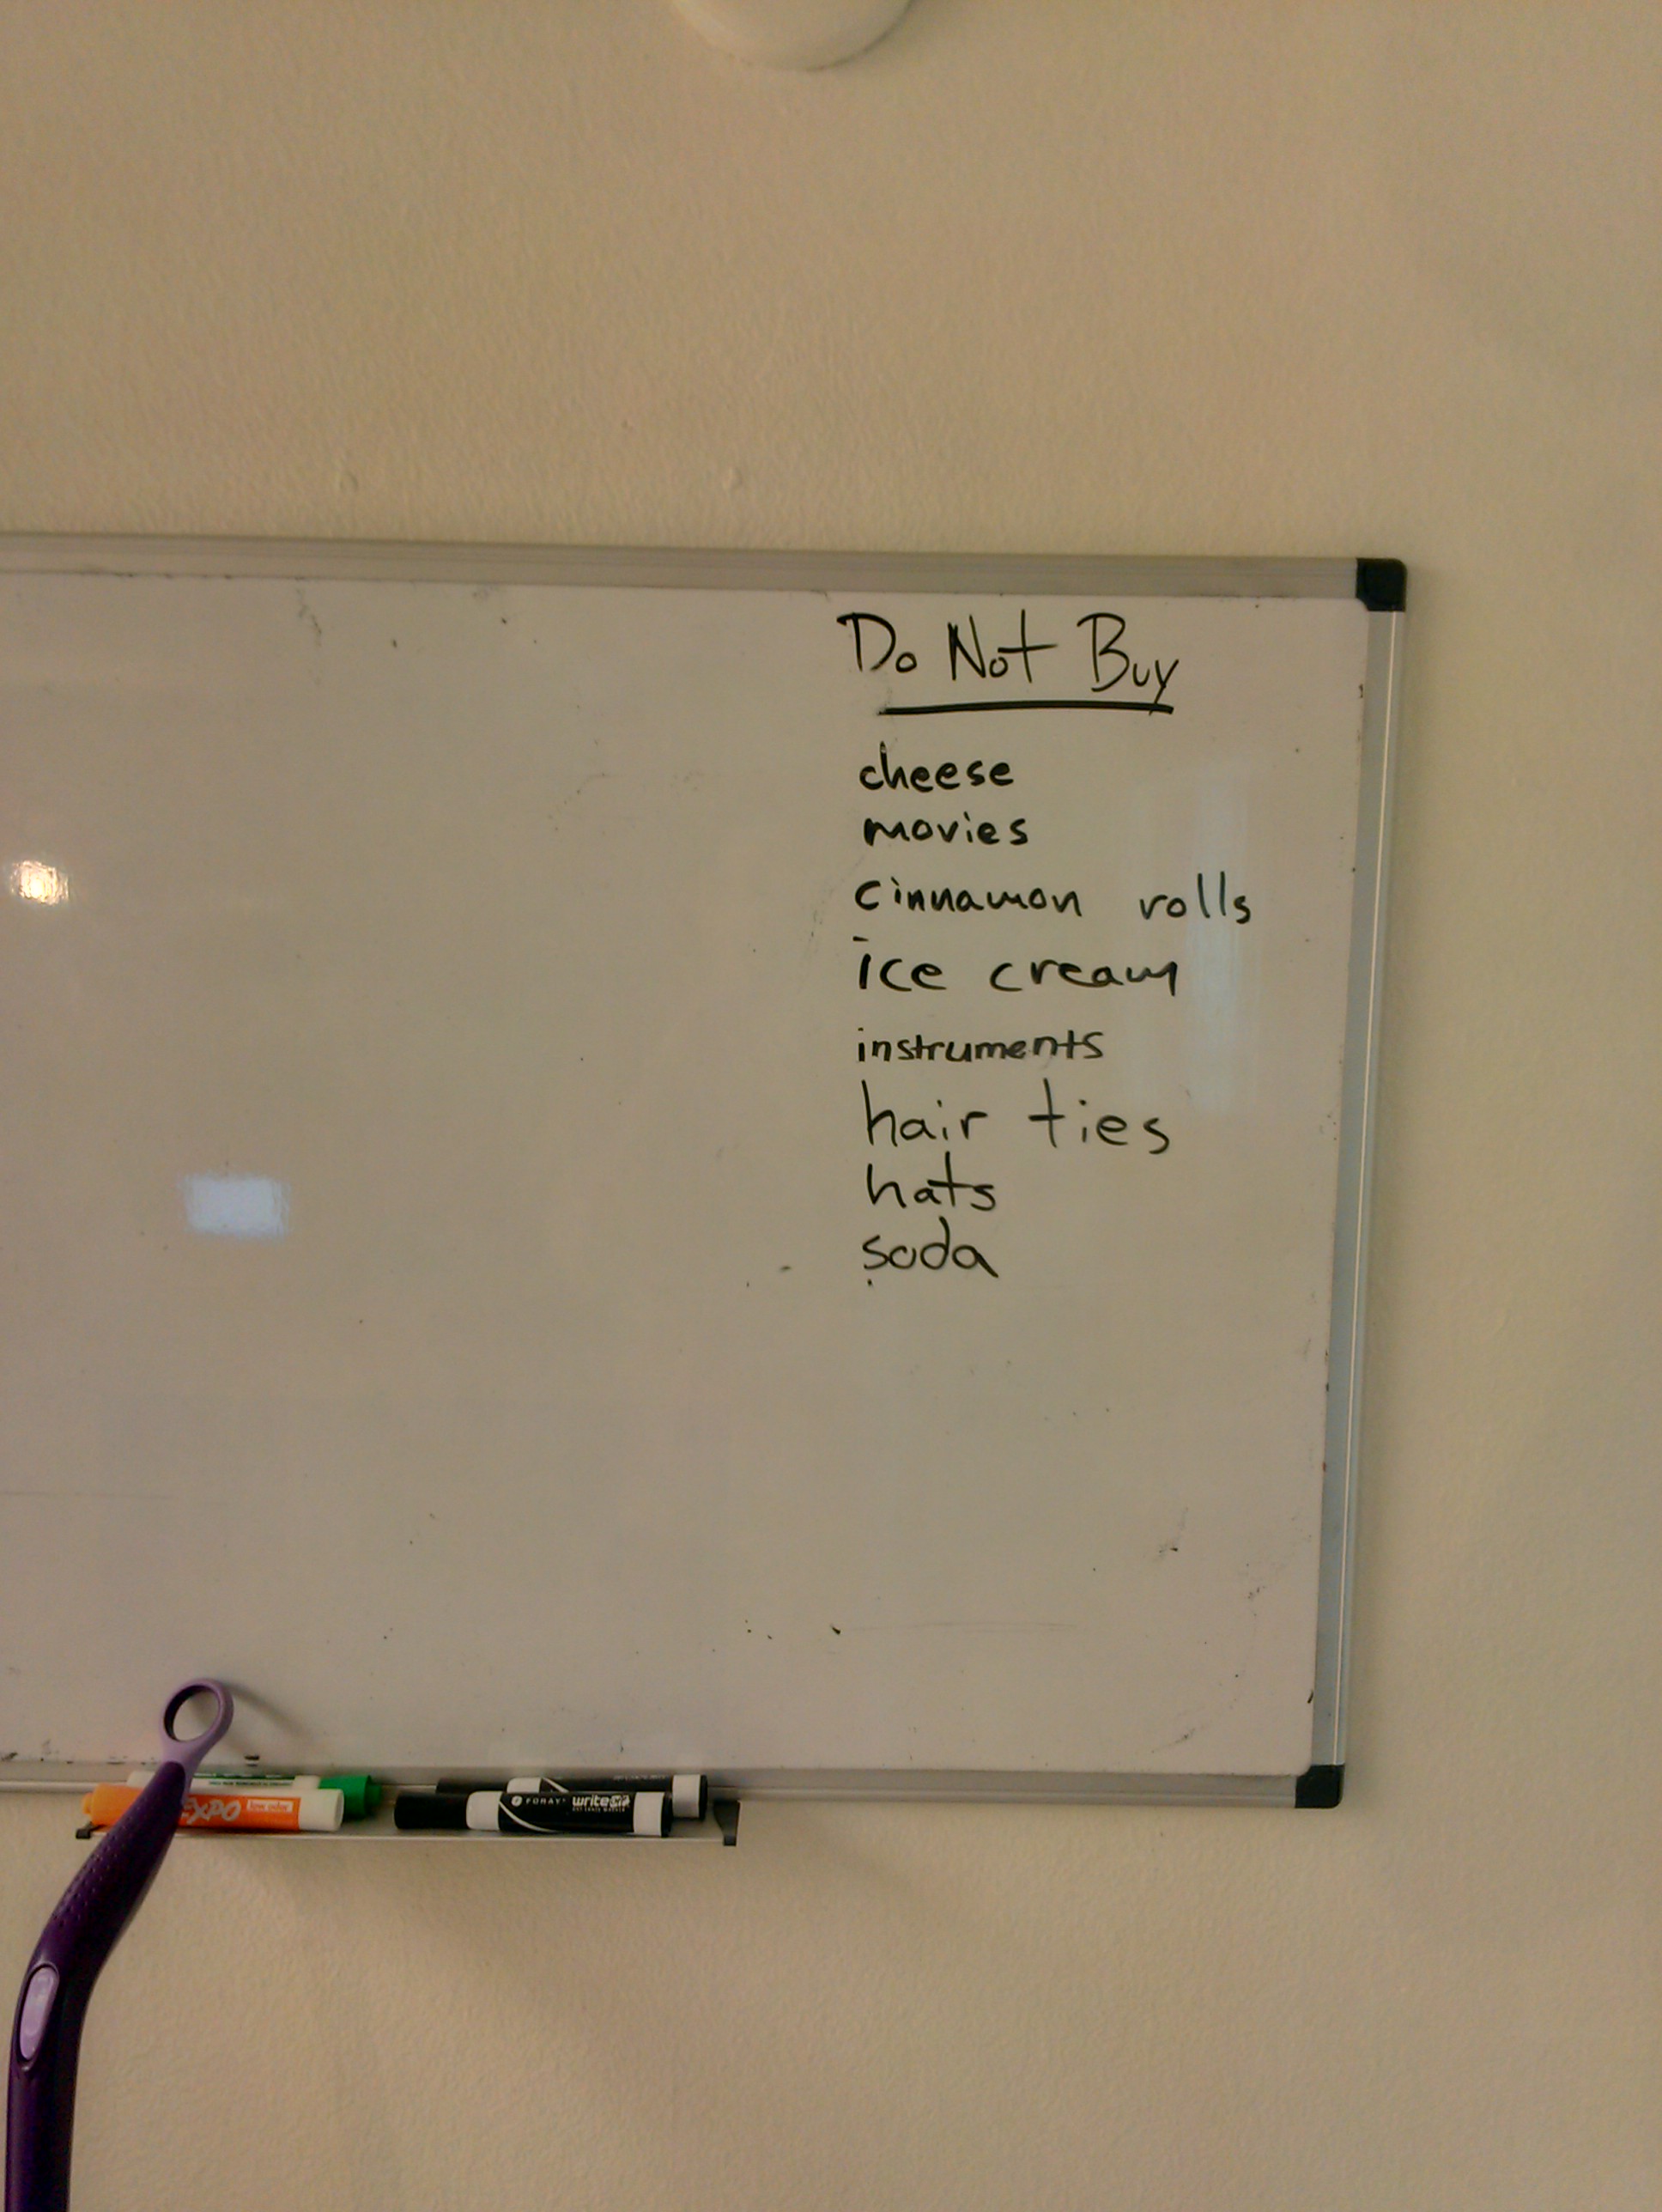 Do Not Buy
cheese
movies
cinnamon rolls
ice cream
instruments
hair ties
hats
soda
EXPO low odor
FORAY write